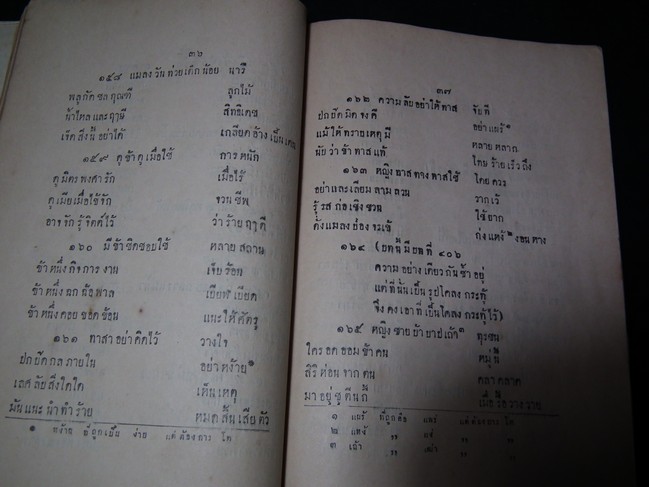 ๓๖
๑๕๘ แมลงวัน ท่วยเด็กน้อย นารี
พลูกัด ชลกุณฑี ลูกไม้
น้ำไหลและฤๅษี สิทธิเดช
เจ็ดสิ่งนี้อย่าได้ เกลียดอ้างเป็น
๑๕๙ ดูข้าดูเมื่อใช้ การหนัก
ดูมิตรพงศารัก เมื่อไร้
ดูเมียเมื่อไข้จัก จวนชีพ
อาจจักรู้จิตต์ไว้ ว่าร้ายฤๅดี
๑๖๐ มีข้าชิดชอบใช้ หลายสถาน
ข้าหนึ่งกิจการงาน เจียรอน
ข้าหนึ่ง พาล เบียฬเบียด
ข้าหนึ่งคอยยอกย้อน แนะให้ศัตรู
๑๖๑ ทาสาอย่าคิดไว้ วางใจ
ปกปิดกลภายใน อย่าหง้าย๑
เลศลับสิ่งใดใด เห็นเหตุ
มันแนะนำทำร้าย หมดสิ้นเสียตัว
๑ หง้าย ที่ถูกเป็น ง่าย แต่ต้องการ โท
๓๗
๑๖๒ ความลับอย่าให้ทาส จับที
ปกปิดมิดจงดี อย่าแพร้๑
แม้ให้ทราบเหตุมี หลายหลาก
นับว่าข้าทาสแท้ โทษร้ายเร็วถึง
๑๖๓ หญิงทาสทางทาสใช้ โดยควร
อย่าและเลียมลามลวน รากเร้
รู้รสก่อเชิงชวน ใช้ยาก
ดังแมลงย่องจระเข้ ทุ่งแหง้๒งอนหาง
๑๖๔ (บทนี้มีบทที่ ๔๐๖
ความอย่างเดียวกันซ้ำอยู่
แต่ที่นั้นเป็นรูปโคลงกระทู้
จึงคงเอาที่เป็นโคลงกระทู้ไว้)
๑๖๕ หญิงชายย้ายบ่ายเถ้า๓ ทุรชน
ใครอดออมข้าคน หมู่นี้
สิริห่อนจากตน คลาคลาด
มาอยู่สู่
๑ แพร้ ที่ถูกคือ แพร่ แต่ต้องการ โท
๒ แหง้ ,, แง่ ,, ,,
๓ เถ้า ,, เฒ่า ,, ,,